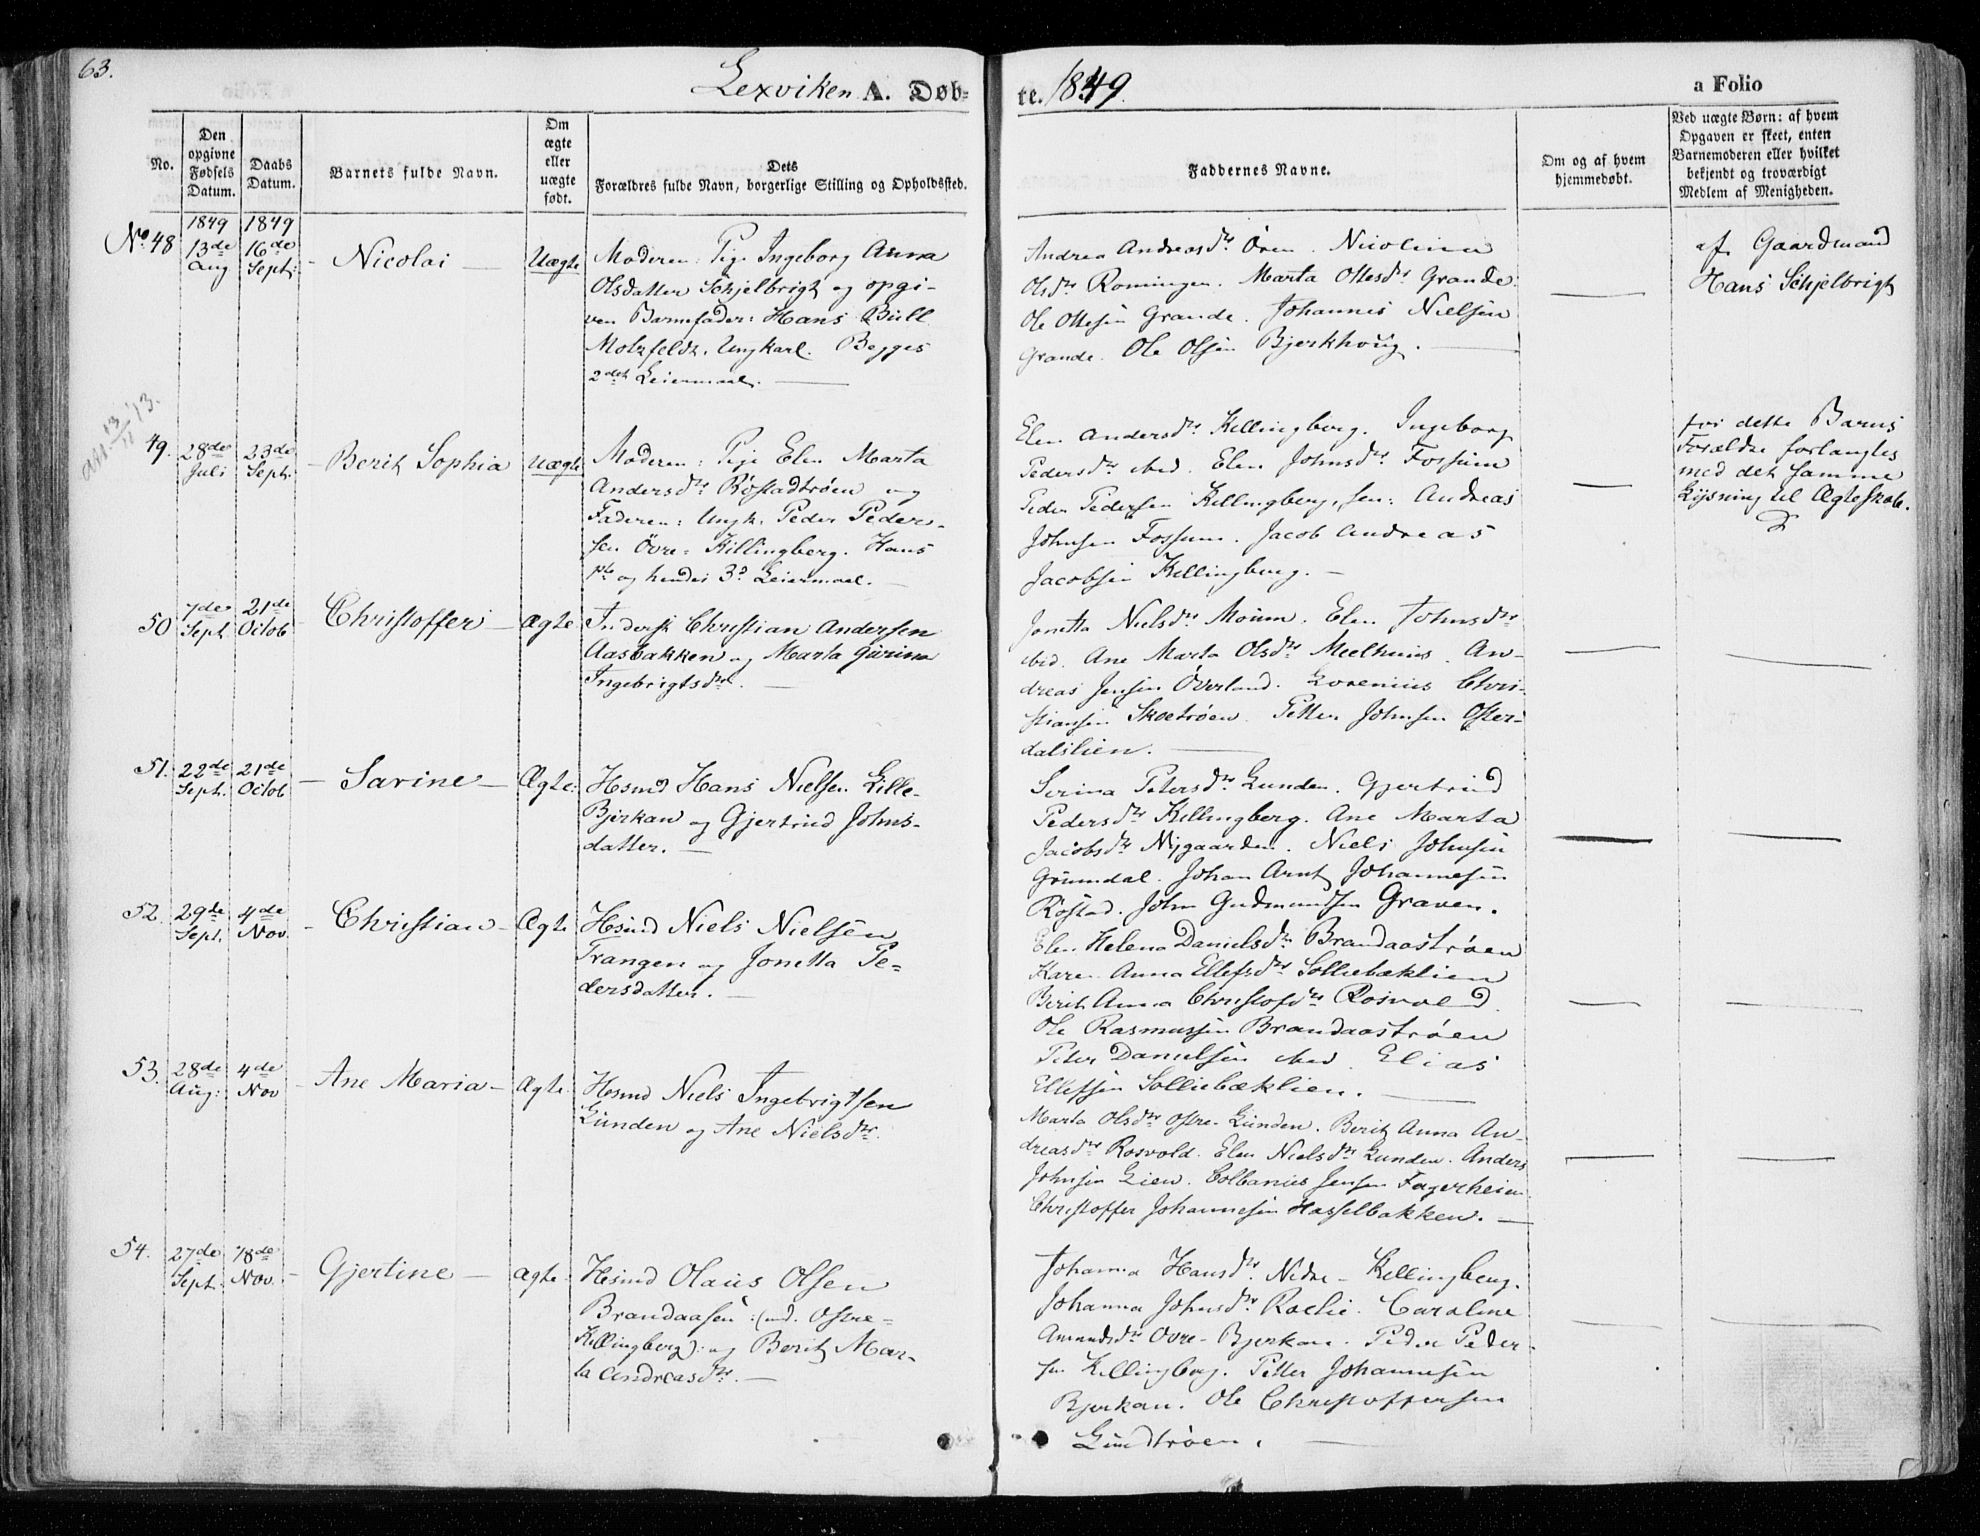 63.
Lexviken A. Døb=
te. 1849.
a Folio
No.
Den opgivne Fødsels Datum.
Daabs Datum.
Barnets fulde Navn.
Om ægte eller uægte født.
Dets
Forældres fulde Navn, borgerlige Stilling og Opholdssted.
Faddernes Navne.
Om og af hvem hjemmedøbt.
Ved uægte Børn: af hvem Opgaven er skeet, enten Barnemoderen eller hvilket bekjendt og troværdigt Medlem af Menigheden.
1849 1849
No. 48 13de Aug 16de Sept: Nicolai Uægte
Moderen: Pige Ingeborg Anna
Olsdatter Schjelbrigt og opgi-
ven Barnefader: Hans Bull
Motzfeldt. Ungkarl. Begges
2det Leiermaal.
Andrea Andreasdtr Ören. Nicolina
Olsdtr Romingen. Marta Ottesdtr Grande.
Ole Ottesen Grande. Johannes Nielsen
Grande. Ole Olsen Bjerkhoug.
af Gaardmand
Hans Schjelbrigt
att. 13/11 '13.
49. 28de Juli 23de Sept. Berit Sophia Uægte
Moderen: Pige Elen Marta
Andersdtr Röstadtröen og
Faderen: Ungk. Peder Peder-
sen Övre-Killingberg. Hans
1ste og hendes 3d Leiermaal.
Elen Andersdtr Killingberg. Ingeborg
Pedersdtr ibid. Elen Johnsdtr Fossum
Peder Pedersen Killingberg, sen: Andreas
Johnsen Fossum. Jacob Andreas
Jacobsen Killingberg.
for dette Barns
Forældre forlangtes
med det samme
Lysning til Ægteskab.
50 7de Sept 21de Octob Christoffer Ægte
Inderst Christian Andersen
Aasbakken og Marta Gurina
Ingebrigtsdtr.
Jonetta Nielsdtr Moum. Elen Johnsdtr
ibid. Ane Marta Olsdtr Meelhuus. An-
dreas Jensen Överland. Lorenius Chri-
stiansen Skoetröen. Petter Johnsen Öster-
dalslien.
51. 22de Sept. 21de Octob Sarine Ægte.
Hsmd Hans Nielsen Lille-
Bjerkan og Gjertrud Johns-
datter.
Serina Petersdtr Lunden. Gjertrud
Pedersdtr Killingberg. Ane Marta
Jacobsdtr Nygaarden. Niels Johnsen
Grönndal. Johan Arnt Johannesen
Röstad. John Gudmundsen Graven.
52. 29de Sept. 4de Nov. Christian Ægte
Hsmd Niels Nielsen
Trangen og Jonetta Pe-
dersdatter.
Elen Helena Danielsdtr Brandaaströen
Karen Anna Ellefsdtr Solliebæklien
Berit Anna Christofdtr Rosvold.
Ole Rasmussen Brandaaströen
Peter Danielsen ibid. Elias
Ellefsen Solliebæklien.
53. 28de Aug: 4de Nov Ane Maria Ægte.
Hsmd Niels Ingebrigtsen
Lunden og Ane Nielsdtr.
Marta Olsdtr Östre-Lunden. Berit Anna An-
dreasdtr Rosvold. Elen Nielsdtr Lunden. Anders
Johnsen Lien. Colbanius Jensen Fagerheim
Christoffer Johannesen Hasselbakken.
54. 27de Sept. 18de Nov. Gjertine Ægte.
Hsmd Olaus Olsen
Brandaasen :(nd. Östre-
Killingberg): og Berit Mar-
ta Andreasdtr.
Johanna Hansdtr. Nedre-Killingberg.
Johanna Johnsdtr Raelie. Caroline
Amundsdtr Övre-Bjerkan. Peder Peder-
sen Killingberg. Petter Johannesen
Bjerkan. Ole Christoffersen
Lundtröen.